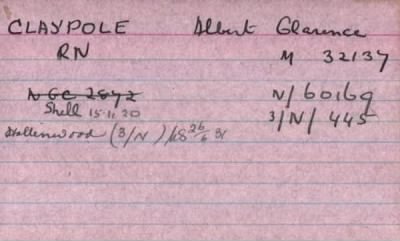 CLAYPOLE Albert Clarence
RN M 32137
NGC 2872 N/60169
Shell 15.11.20 3/N/445
Hollinwood (3/N) 26/6 31